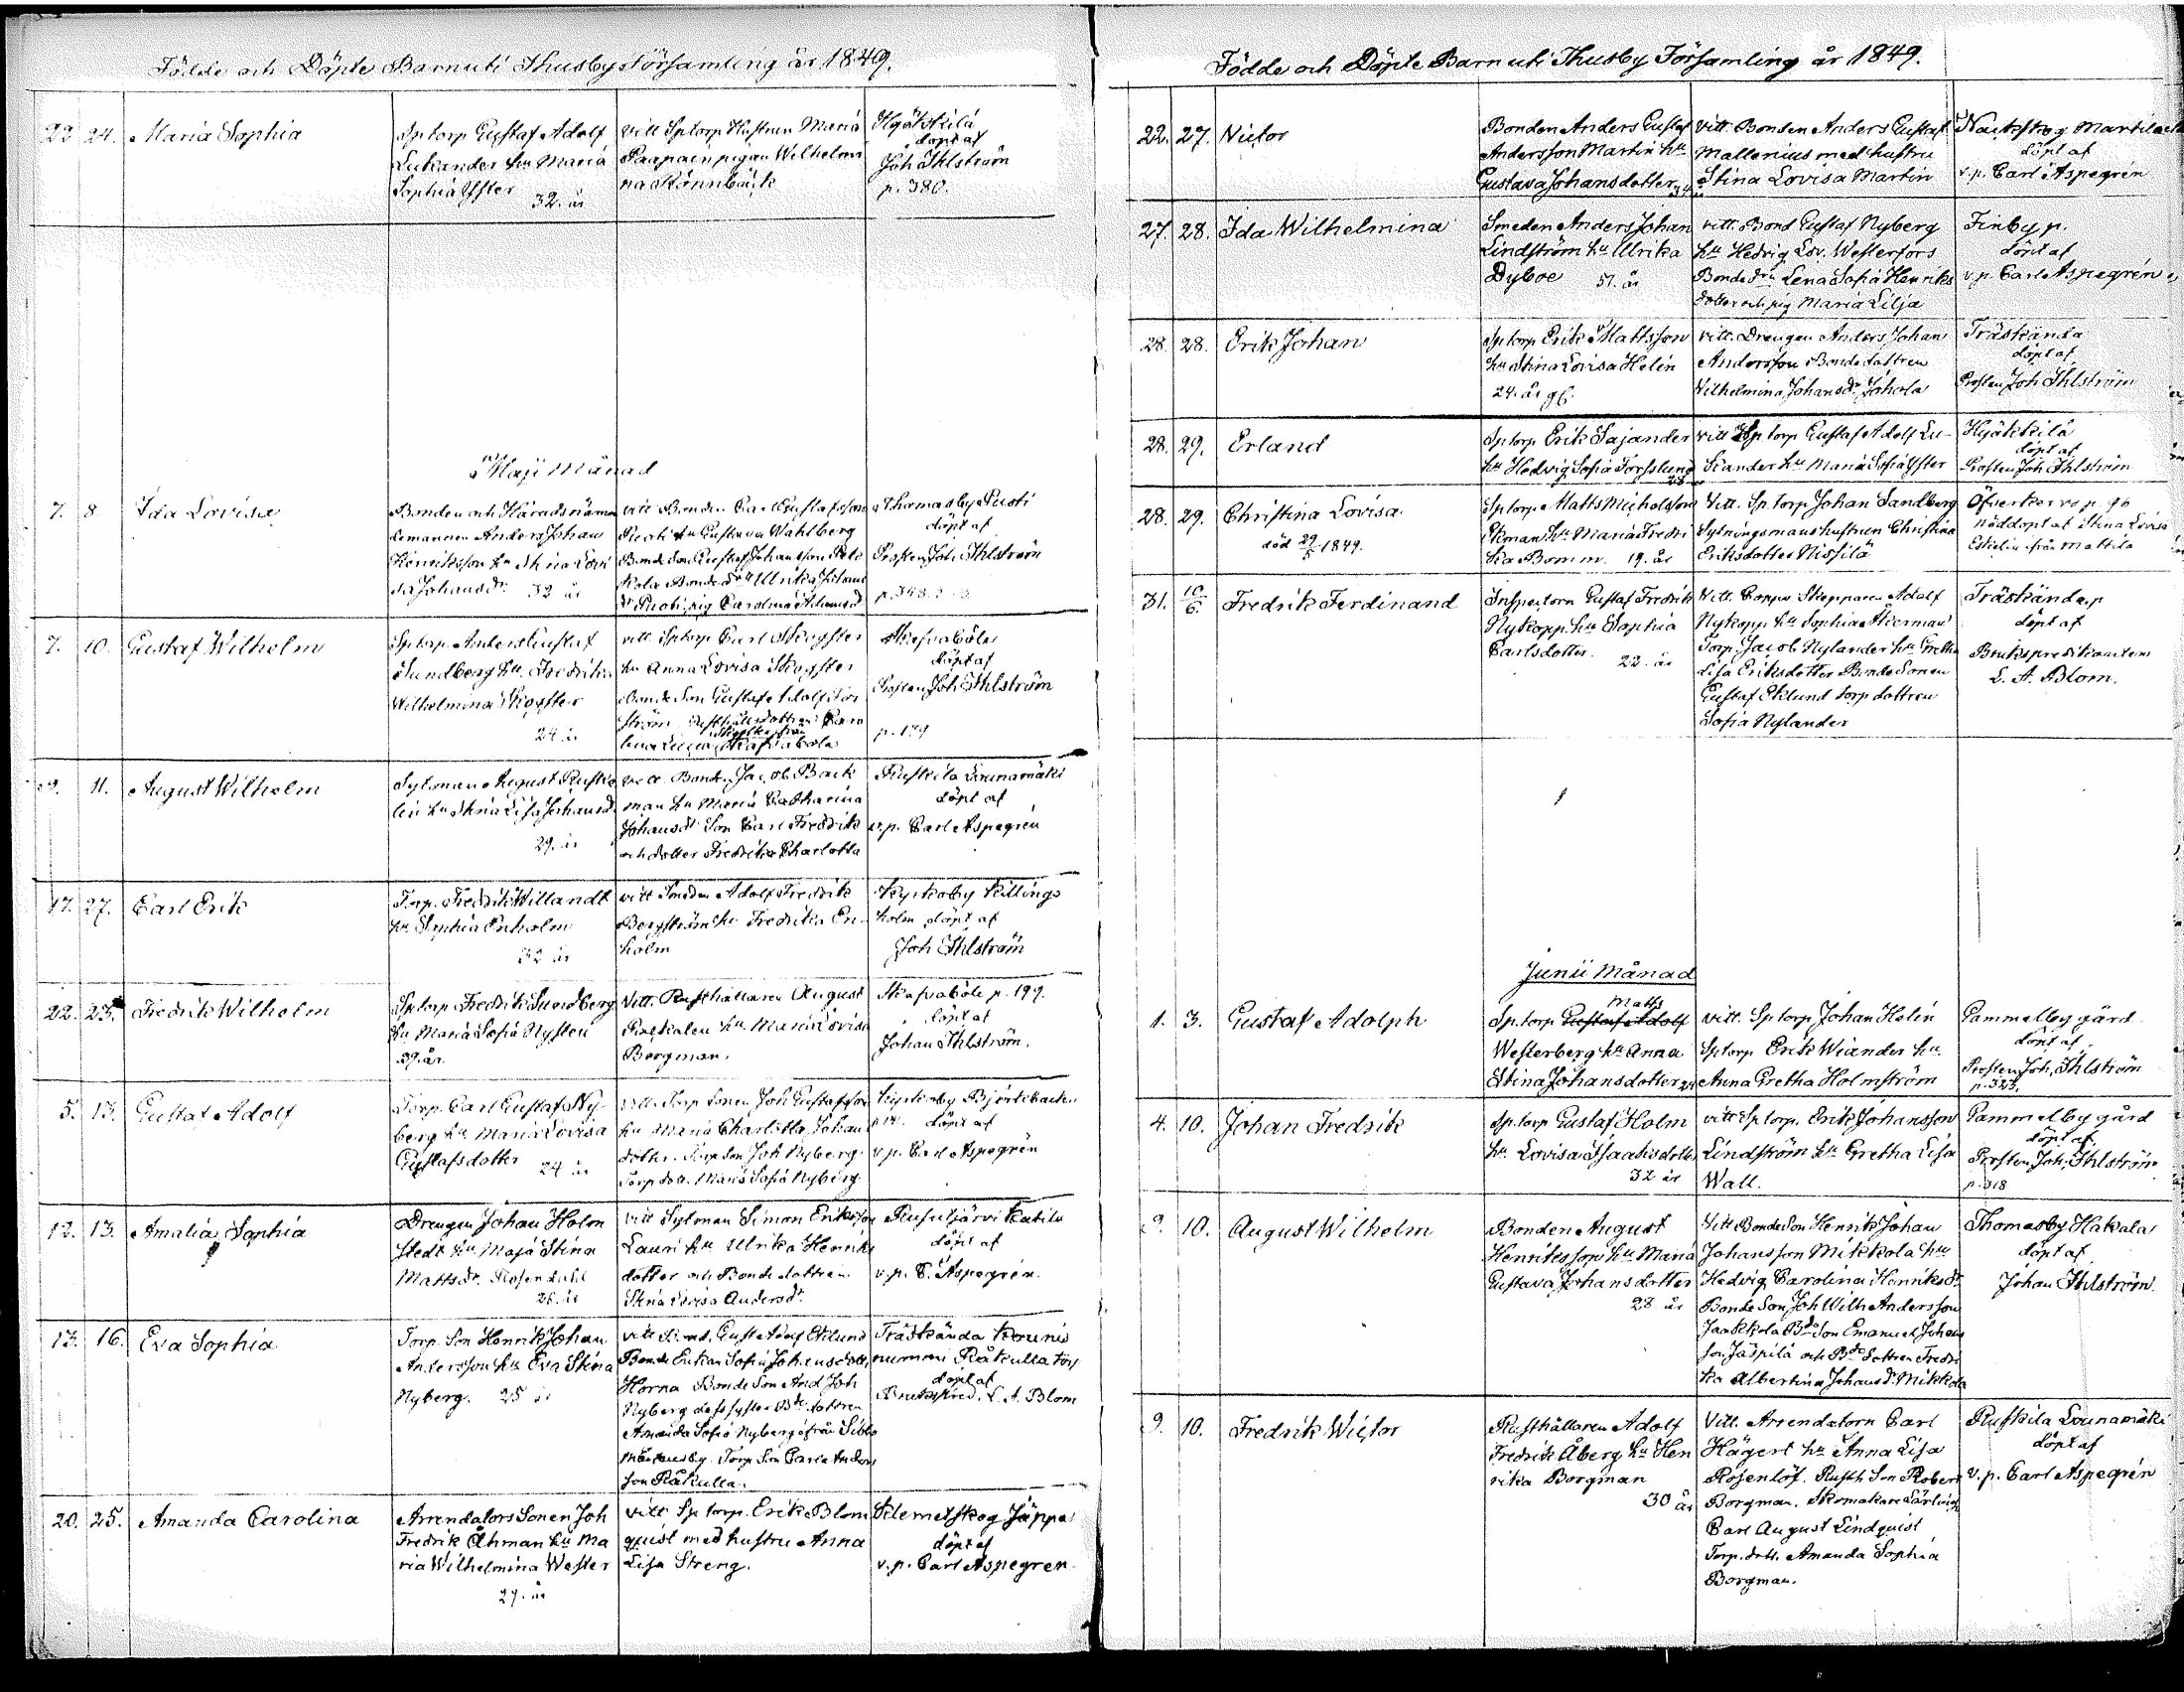 Födde och Döpte Barn uti Thusby församling år 1849.
22 24. Maria Sophia
Sptorp Gustaf Adolf
Lukander hu Maria
Sophia Yster 32. år
vitt Sptorp Hustrun Maria
Paapain pigan Wilhelmi
na Rönnbäck
Hyökkilä
döpt af
Joh Ihlström
p. 380.
Maji Månad
7. 8 Ida Lovisa
Bonden och Häradsnämn
demannen Anders Johan
Henriksson hu Stina Lovi
sa Johansdr 32 år
vitt Bonden Carl Gustafsson
Pusti hu Gustava Wahlberg
Bonde Son Gustaf Johansson
Thomasby Pusti
döpt af
Prosten Joh Ihlström
7. 10. Gustaf Wilhelm
Sptorp Anders Gustaf
Sundberg hu Fredrika
Wilhelmina Skogster
24 år
vitt Sptorp Carl Skogster
hu Anna Lovisa Skogster
Bonde Son Gustaf Adolf
Skafvaböle
döpt af
Prosten Joh Ihlström
p. 179
9. 11. August Wilhelm
Sytsman August
hu Stina Lisa Johansdr
29. år
vitt. Bonden Jacob Back
man hu Maria Catharina
Johansdr Son Carl Fredrik
och dotter Fredrika Charlotta
Ruskila Lounamäki
döpt af
v.p. Carl Aspegrén
17. 27. Carl Erik
Torp. Fredrik Willandt
hu Sophia Enholm
32 år
vitt Smeden Adolf Fredrik
Bergström hu Fredrika En-
holm
Kyrkoby Killings
holm döpt af
Joh Ihlström
22. 23. Fredrik Wilhelm
Sptorp Fredrik Sundberg
hu Maria Sofia Nystén
29. år.
Vitt. Rusthållaren August
hu Maria Lovisa
Bergman.
Skafvaböle p. 199.
döpt af
Johan Ihlström.
5. 13. Gustaf Adolf
Torp. Carl Gustaf Ny-
berg hu Maria Lovisa
Gustafsdotter 24 år
vitt. Torp Sonen Joh Gustafsson
hu Maria Charlotta Johans
dotter. Torp Son Joh Nyberg
Torp dott. Maria Sofia Nyberg
Kyrkoby Björkbacka
döpt af
v.p. Carl Aspegrén
12. 13. Amalia Sophia
Drengen Johan Holm
stedt hu Maja Stina
Mattsdr. Rosendahl
28. år
vitt Sytsman Simon Eriksson
Lauri hu Ulrika Henriks
dotter och Bonde dottren
Stina Lovisa Andersdr
Rusutjärvi Katila
döpt af
v.p. C. Aspegrén.
13. 16. Eva Sophia
Torp. Son Henrik Johan
Andersson hu Eva Stina
Nyberg. 25 år
vitt Gust Adolf Eklund
Bonde Enkan Sofia Johansdott.
Horna Bonde Son And Joh
Nyberg dess syster Bde dottren
Amanda Sofia Nyberg från Sibbo
Mårtensby. Torp Son Carl Anders
son Råkulla.
Träskända Krounis
nummi Råkulla torp
döpt af
Brukspred. L. A. Blom
20. 25. Amanda Carolina
Arrendators Sonen Joh
Fredrik Åhman hu Ma
ria Wilhelmina Wester
27. år
vitt Sp torp. Erik Blom
quist med hustru Anna
Lisa Streng.
Klemetskog Jäppa
döpt af
v.p. Carl Aspegren
Födde och Döpte Barn uti Thusby Församling år 1849.
22. 27. Victor
Bonden Anders Gustaf
Andersson Martin hu
Gustava Johansdotter 34 år
Vitt. Bonden Anders Gustaf
Mallenius med hustru
Stina Lovisa Martin
Nackskog Martila
döpt af
v.p. Carl Aspegrén
27. 28. Ida Wilhelmina
Smeden Anders Johan
Lindström hu Ulrika
Dyboe 51. år
vitt. Bond Gustaf Nyberg
hu Hedvig Lov. Westerfors
Bonde drn Lena Sofia Henriks
dotter och pig Maria Lilja
Finby p.
döpt af
v.p. Carl Aspegrén
28. 28. Erik Johan
Sptorp Erik Mattsson
hu Stina Lovisa Helén
24. år
vitt. Drengen Anders Johan
Andersson Bonde dottren
Wilhelmina Johansdr Johola
Träskända
döpt af
Prosten Joh Ihlström
28. 29. Erland
Sptorp Erik Sajander
hu Hedvig Sofia Forsslund
28
vitt Sptorp Gustaf Adolf Lu-
kander hu Maria Sofia Yster
Hyökkilä
döpt af
Prosten Joh Ihlström
28. 29. Christina Lovisa
död 29/5 1849.
Sptorp. Matts Michelsson
Ekman hu Maria Fredri
ka Bomm. 19. år
Vitt. Sp. torp Johan Sandberg
Sytningsmans hustrun Christina
Eriksdotter Nissilä
Öfverkervo p. 90
nöddöpt af Stina Lovisa
Eskelin från Mattila
31. 10/6. Fredrik Ferdinand
Inspectorn Gustaf Fredrik
Nykopp hu Sophia
Carlsdotter. 22. år
Vitt. Skepparen Adolf
Nykopp hu Sophia Åkerman
Torp. Jacob Nylander hu Gretha
Lisa Eriksdotter Bonde Sonen
Gustaf Eklund torp dottren
Sofia Nylander
Träskända p
döpt af
Brukspredikanten
L. A. Blom.
Junii Månad
1. 3. Gustaf Adolph
Matts
Sp. torp Gustaf Adolf
Westerberg hu Anna
Stina Johansdotter 24
vitt. Sptorp Johan Helin
Sptorp Erik Wiander hu
Anna Gretha Holmström
Gammelby gård
döpt af
Prosten Joh. Ihlström
p. 323.
4. 10. Johan Fredrik
Sp. torp Gustaf Holm
hu Lovisa Isaaksdotter
32 år
vitt Sptorp. Erik Johansson
Lindström hu Gretha Lisa
Wall.
Gammelby gård
döpt af
Prosten Joh. Ihlström
p. 318
9. 10. August Wilhelm
Bonden August
Henriksson hu Maria
Gustava Johansdotter
28 år
Vitt Bonde Son Henrik Johan
Johansson Mikkola hu
Hedvig Carolina Henriksdr
Bonde Son Joh Wilh Andersson
Jaakkola Bde Son Emanuel Johans
son Jäspilä och Bde dottren Fredri
ka Albertina Johansdr Mikkola
Thomasby Hakala
döpt af
Johan Ihlström
9. 10. Fredrik Wictor
Rusthållaren Adolf
Fredrik Åberg hu Hen
rika Borgman
30 år
Vitt. Arrendatorn Carl
Hägert hu Anna Lisa
Rosenlöf. Rusth Son Robert
Borgman. Skomakare Lärling
Carl August Lindquist
Torp. dott. Amanda Sophia
Borgman.
Ruskila Lounamäki
döpt af
v.p. Carl Aspegrén